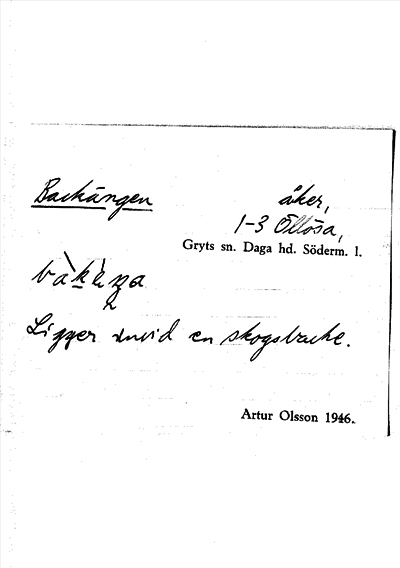 Backängen åker,
1-3 Öllösa,
Gryts sn. Daga hd. Söderm. l.
Ligger invid en skogsbacke.
Artur Olsson 1946.